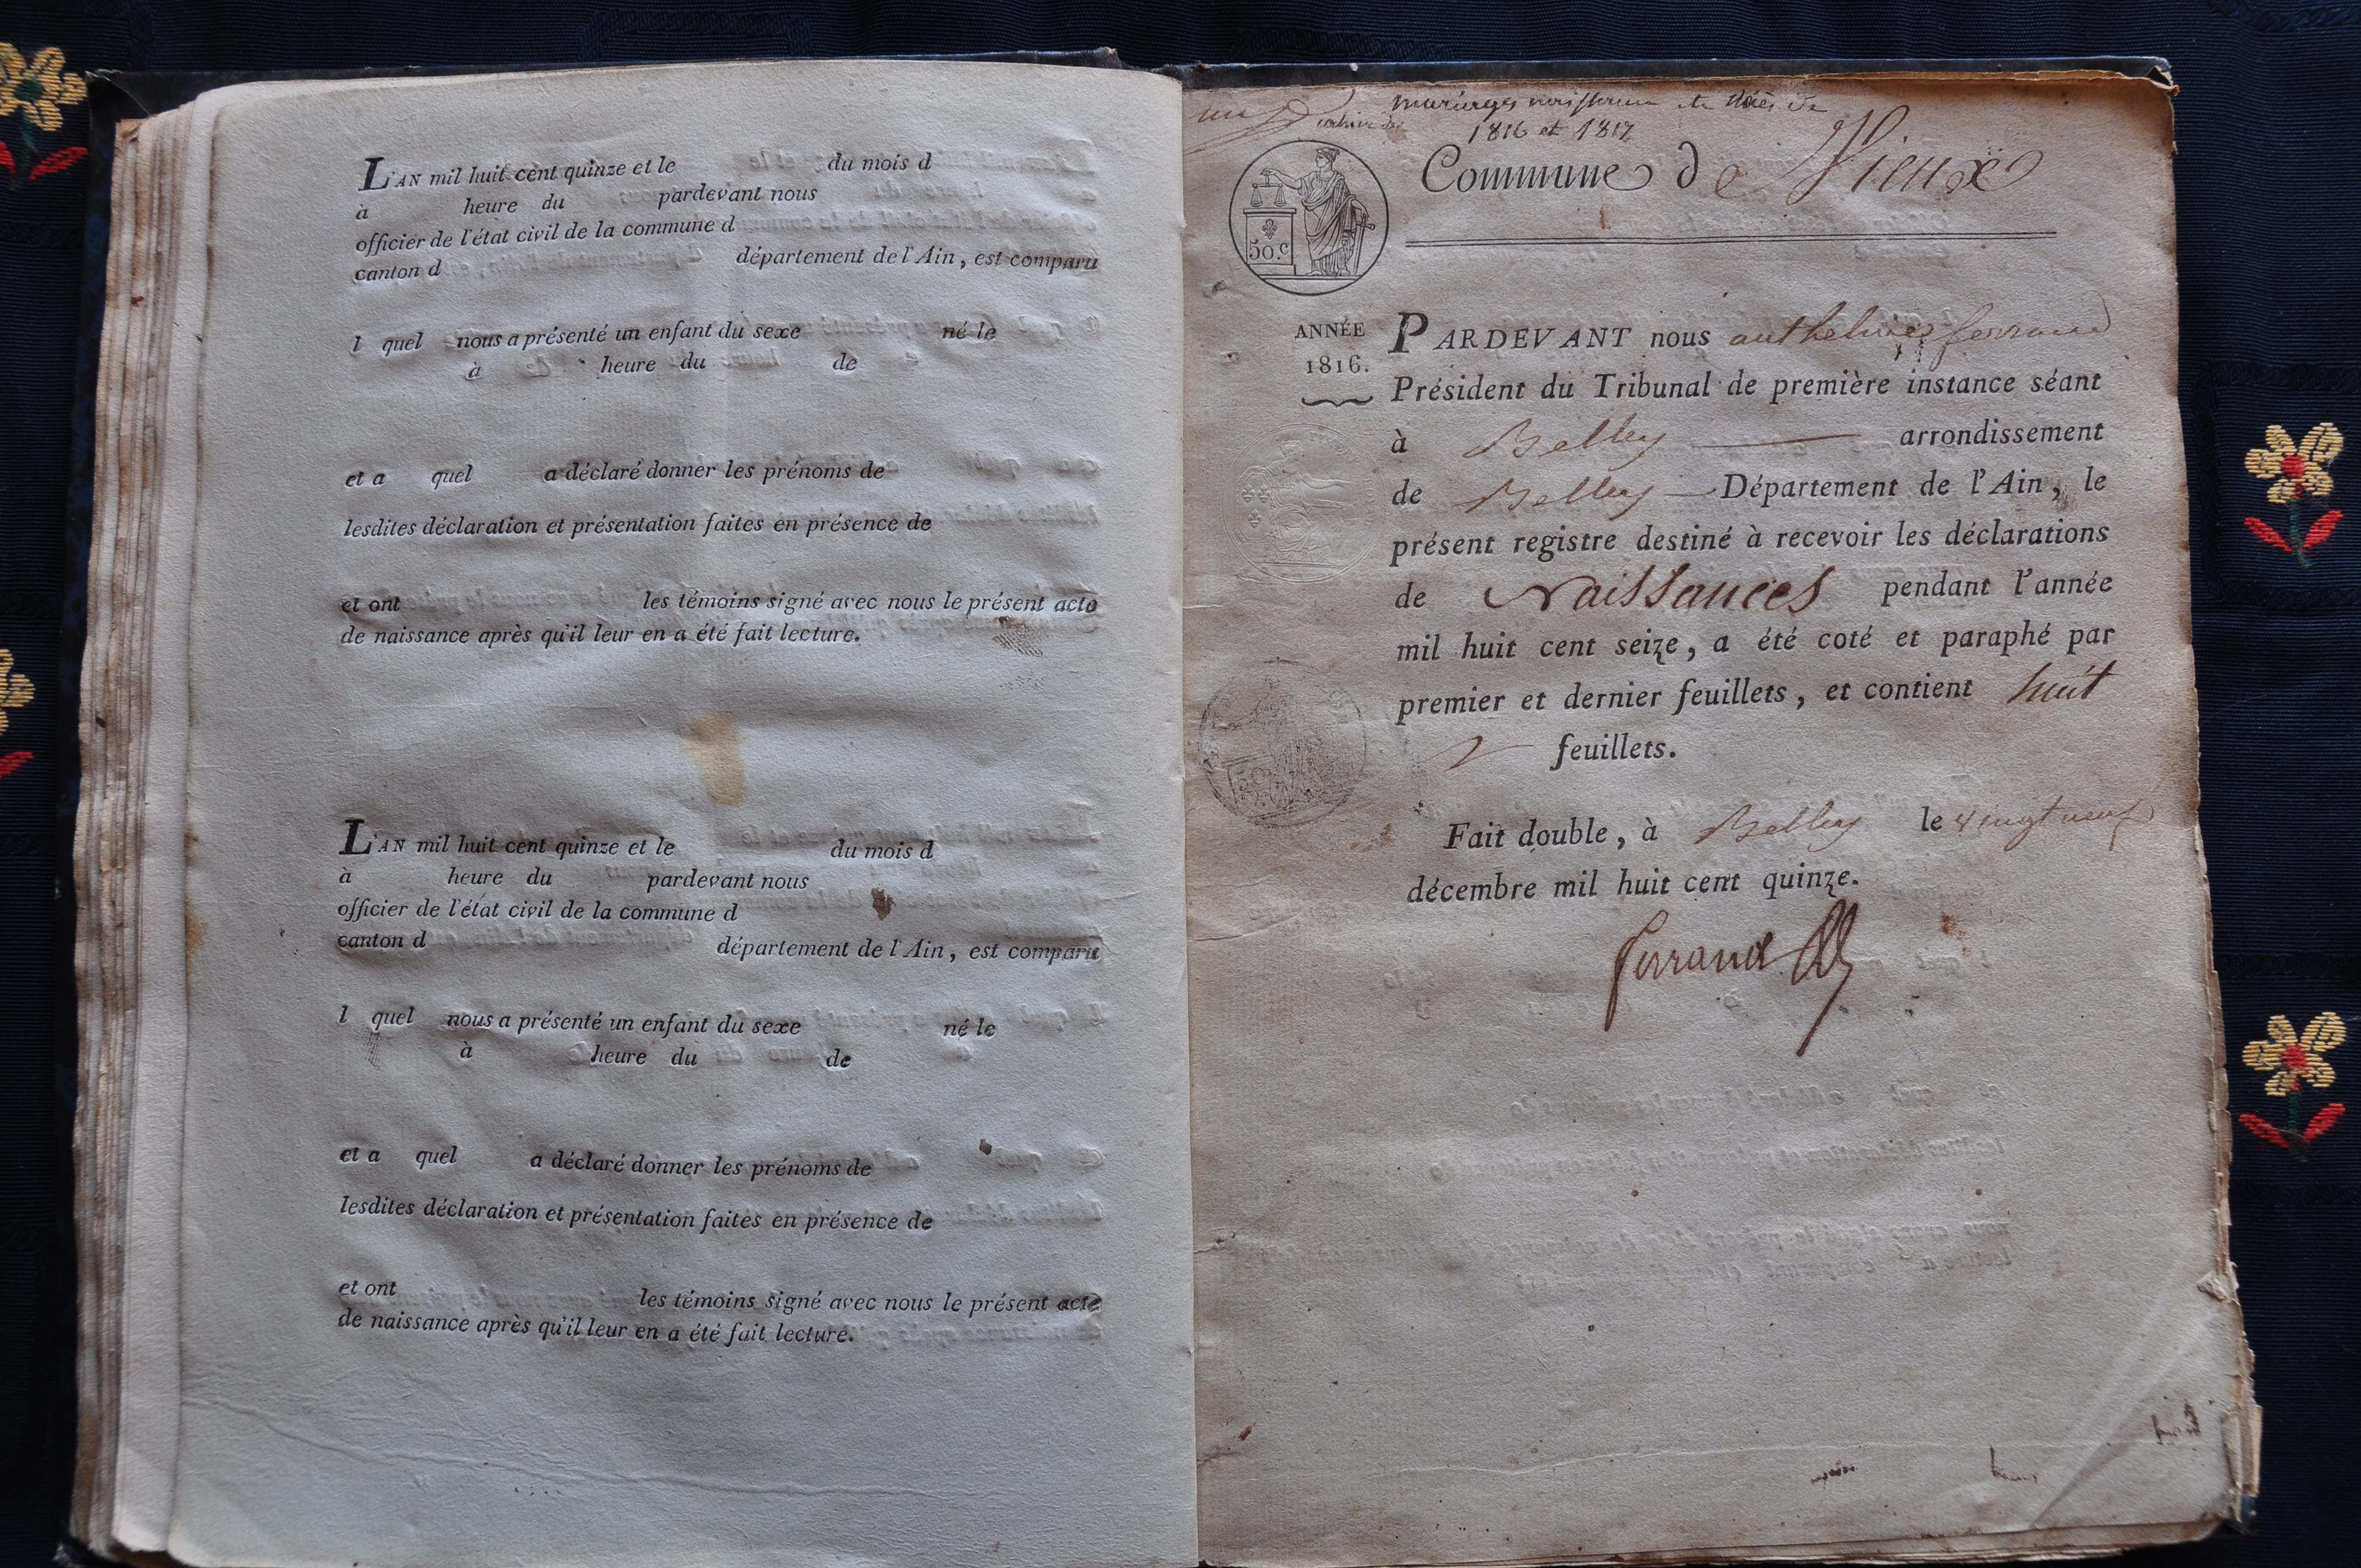 L'AN mil huit cent quinze et le du mois d
à heure du pardevant nous
officier de l'état civil de la commune d
canton d département de l'Ain, est comparu
l quel nous a présenté un enfant du sexe né le
à heure du de
et a quel a déclaré donner les prénoms de
lesdites déclaration et présentation faites en présence de
et ont les témoins signé avec nous le présent acte
de naissance après qu'il leur en a été fait lecture.
L'AN mil huit cent quinze et le du mois d
à heure du pardevant nous
officier de l'état civil de la commune d
canton d département de l'Ain, est comparu
l quel nous a présenté un enfant du sexe né le
à heure du de
et a quel a déclaré donner les prénoms de
lesdites déclaration et présentation faites en présence de
et ont les témoins signé avec nous le présent acte
de naissance après qu'il leur en a été fait lecture.
mariages
1816 et 1817
Commune de Vieux
50.c
ANNÉE
1816.
PARDEVANT nous anthelme ferrand
Président du Tribunal de première instance séant
à Belley arrondissement
de Belley Département de l'Ain, le
présent registre destiné à recevoir les déclarations
de Naissances pendant l'année
mil huit cent seize, a été coté et paraphé par
premier et dernier feuillets, et contient huit
feuillets.
Fait double, à Belley le vingt neuf
décembre mil huit cent quinze.
ferrand